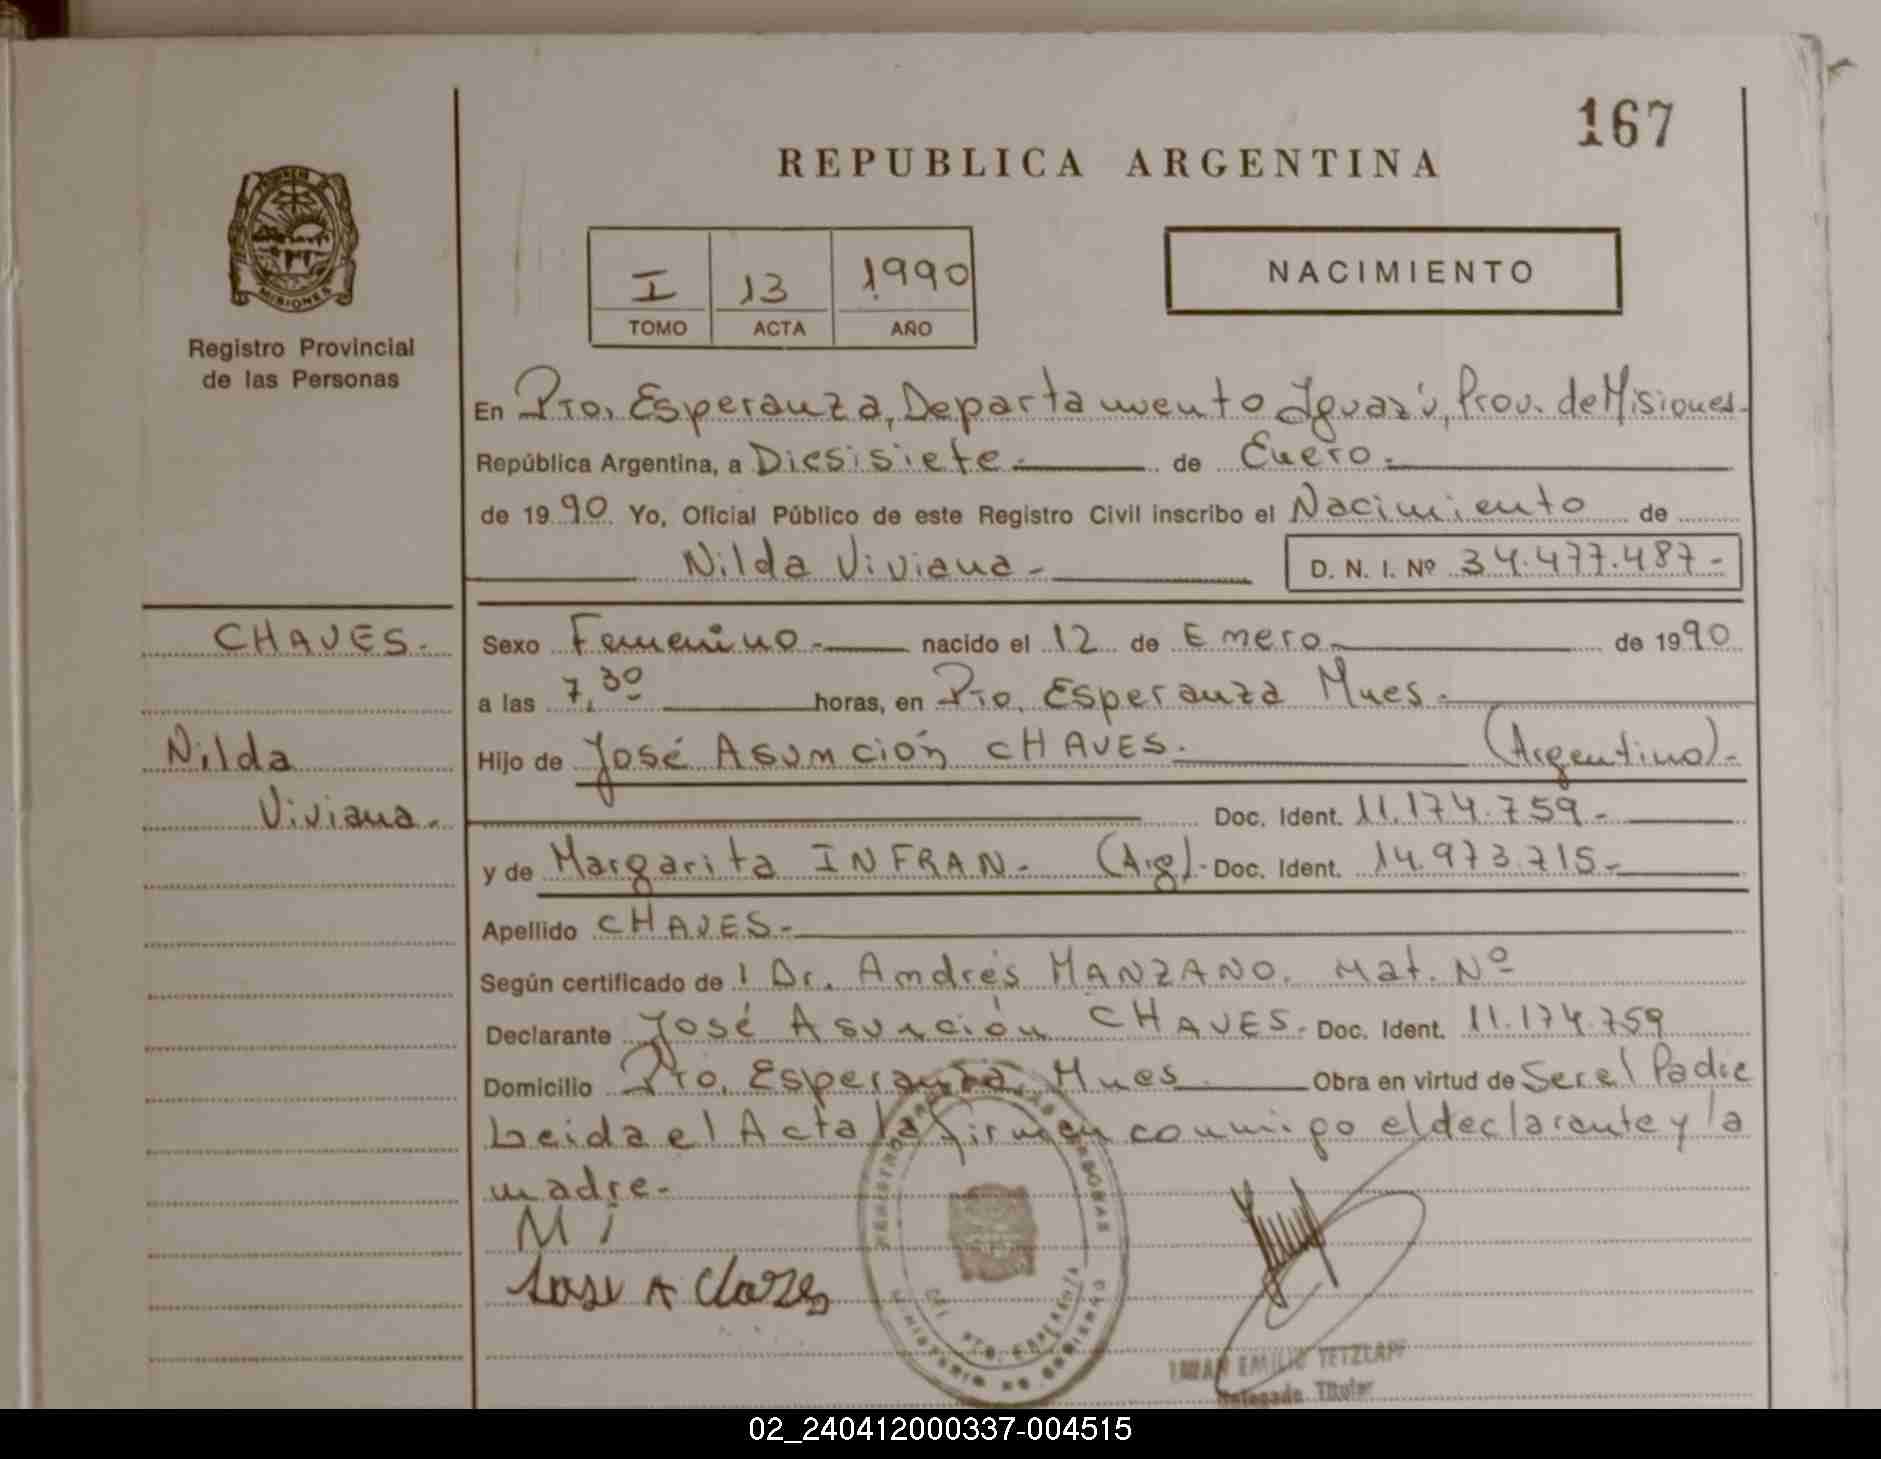 167
REPUBLICA ARGENTINA
MISIONES
Registro Provincial
de las Personas
I 13 1990
TOMO ACTA AÑO
NACIMIENTO
En Pto. Esperanza, Departamento Iguazú, Prov. de Misiones-
República Argentina, a Diesisiete.- de Enero.-
de 1990. Yo, Oficial Público de este Registro Civil inscribo el Nacimiento de
Nilda Viviana- D. N. I. Nº 34.477.487-
CHAVES.
Nilda
Viviana.
Sexo Femenino.- nacido el 12 de Enero de 1990
a las 7,30 horas, en Pto. Esperanza Mnes.
Hijo de José Asunción CHAVES. (Argentino).-
Doc. Ident. 11.174.759-
y de Margarita INFRAN- (Arg).- Doc. Ident. 14.973.715-
Apellido CHAVES-
Según certificado de Dr. Andrés MANZANO. Mat. Nº
Declarante José Asunción CHAVES. Doc. Ident. 11.174.759
Domicilio Pto. Esperanza, Mnes Obra en virtud de Ser el Padre
Leida el Acta la firman conmigo el declarante y la
madre-
M i
Jose A Chaves
PTO. ESPERANZA
MINISTERIO DE GOBIERNO
EMILIO TETZLAFF
Delegado Titular
02_240412000337-004515